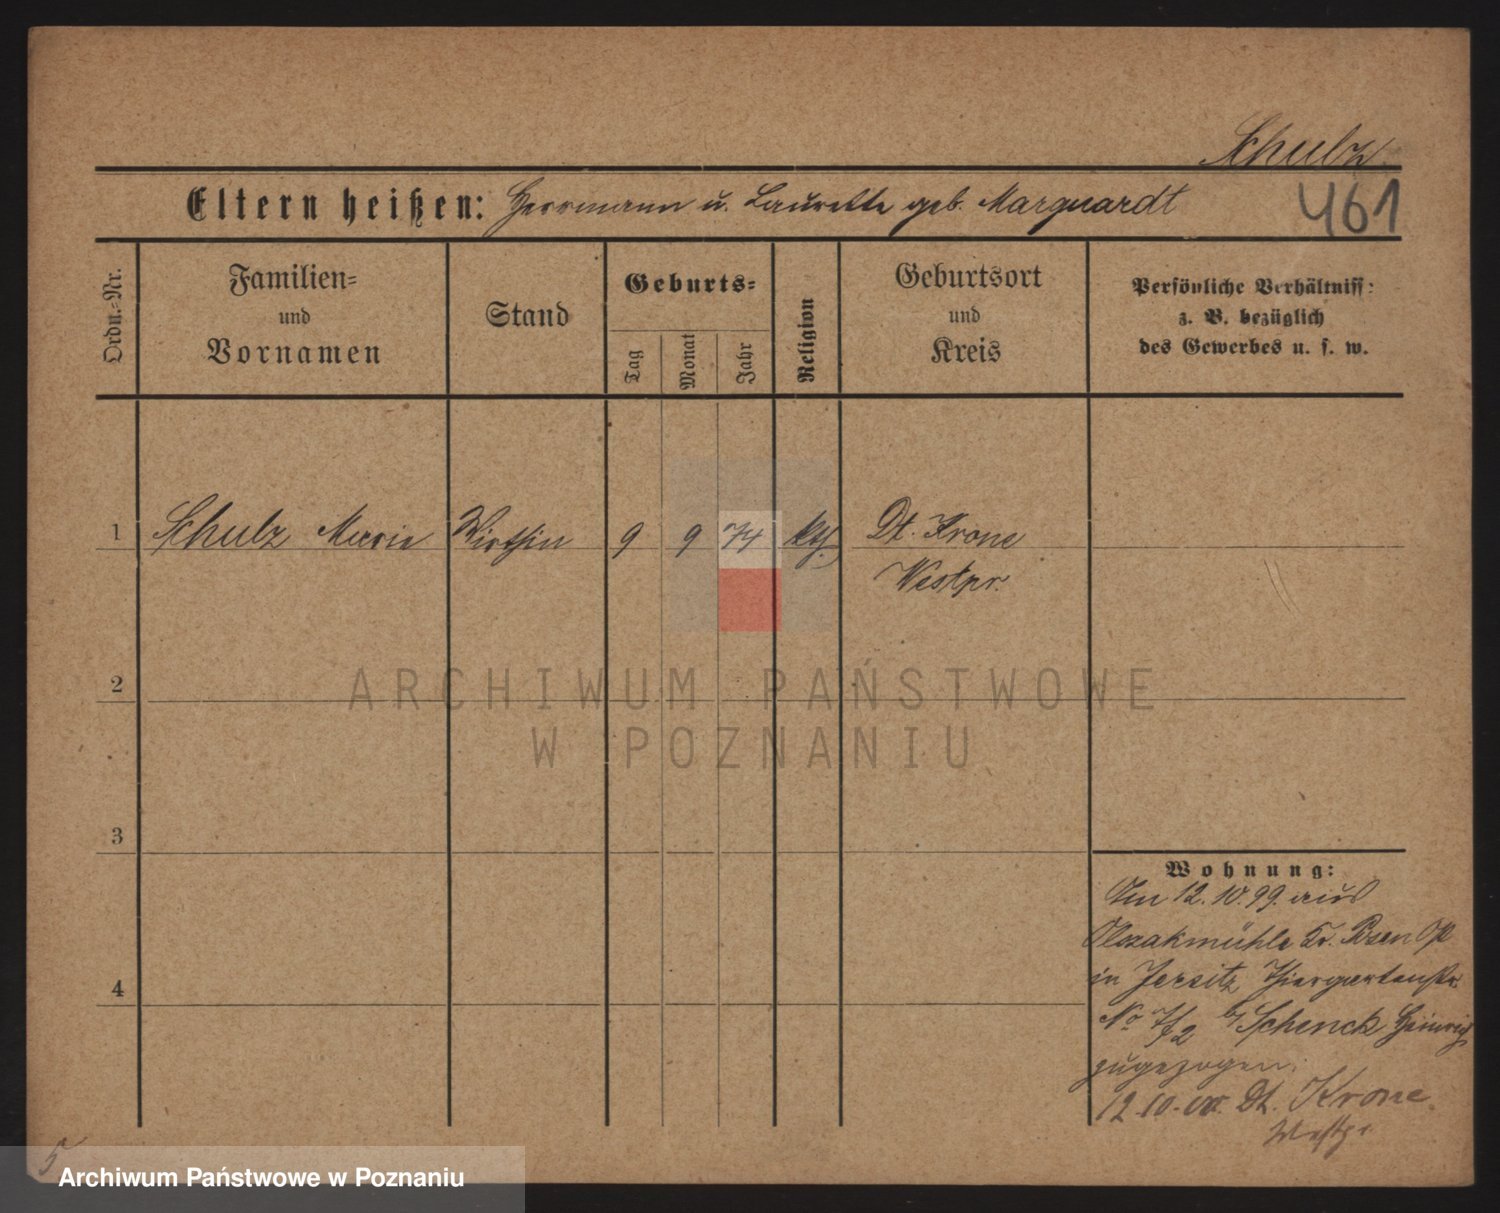 Schulz
Eltern heißen: Herrmann u. Laurette geb. Marquardt
461
Ordn.-Nr.
Familien-
und
Vornamen
Stand
Geburts-
Tag
Monat
Jahr
Religion
Geburtsort
und
Kreis
Persönliche Verhältniss:
z. B. bezüglich
des Gewerbes u. s. w.
1 Schulz Marie Wirthin 9 9 74 kth. Dt. Krone
Westpr.
ARCHIWUM PAŃSTWOWE
W POZNANIU
2
3
4
Wohnung:
Am 12.10.99. aus
Olszakmühle Kr. Posen Ost
in Jersitz Thiergartenstr.
No 7/2 b/ Schenck Heinrich
zugezogen.
12.10.00. Dt. Krone
Westpr.
5
Archiwum Państwowe w Poznaniu